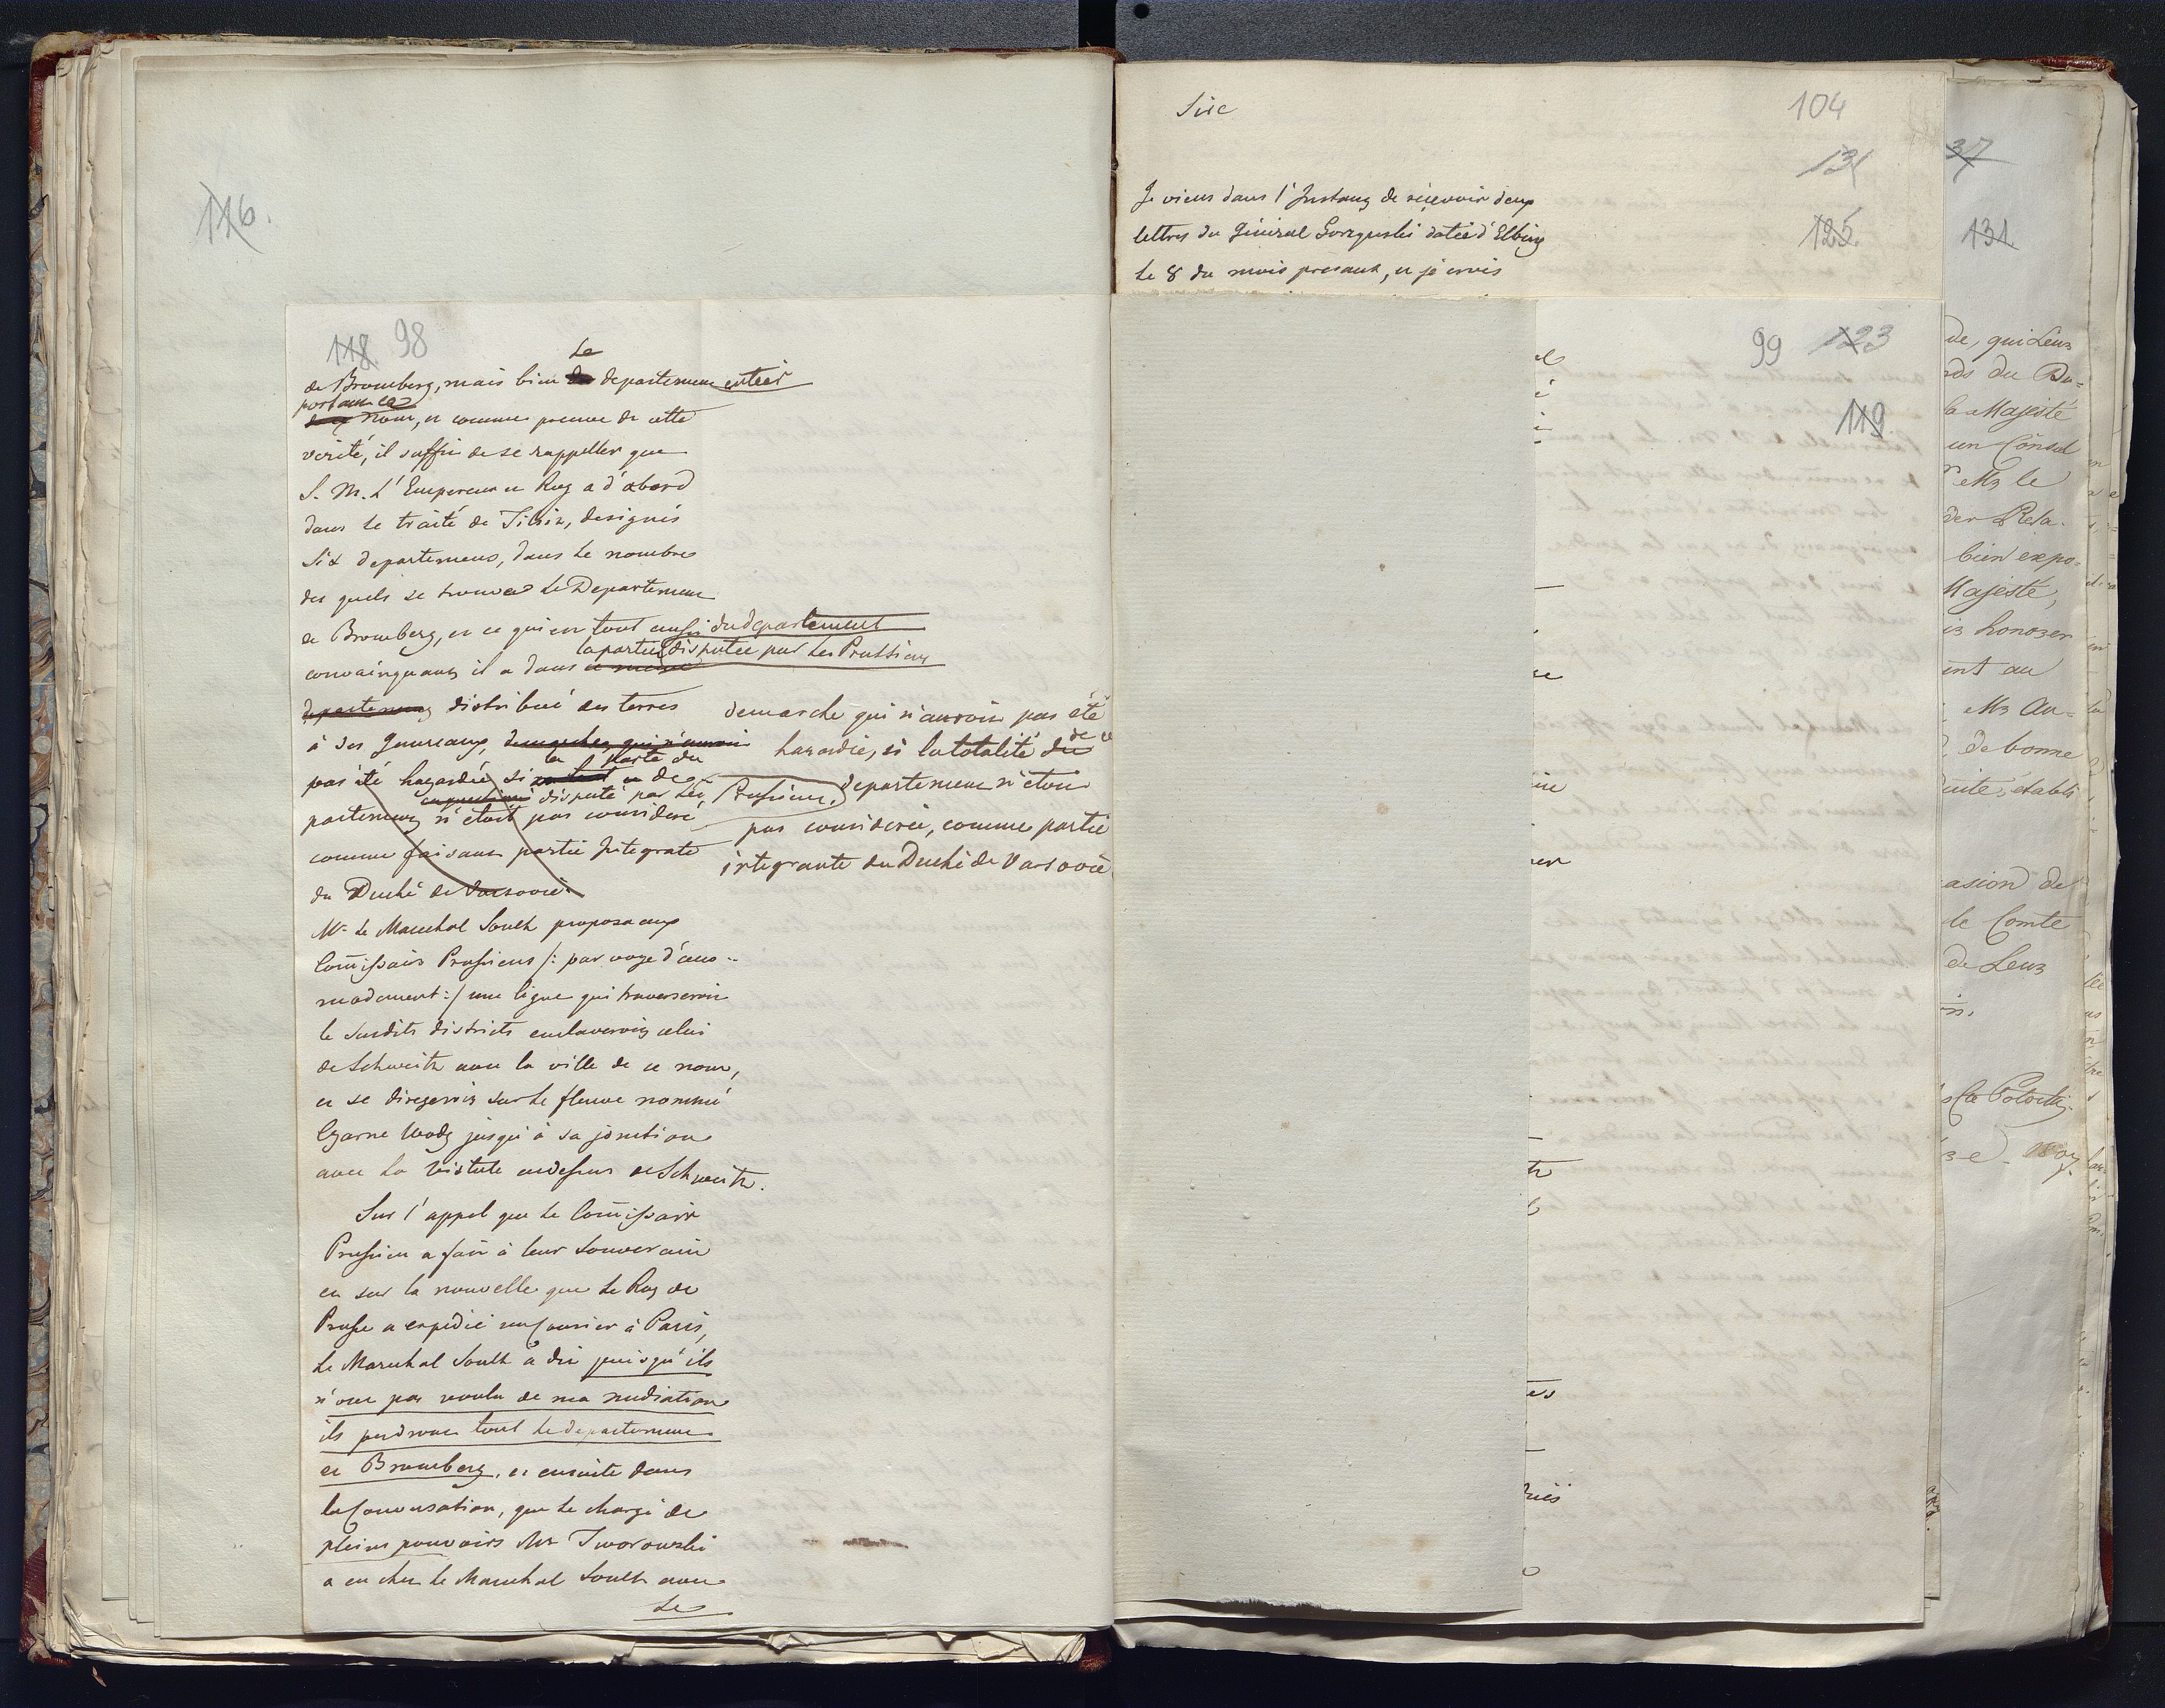 116.
118 98
le
de Bromberg, mais bien du departement entier
portant ce
nom, et comme preuve de cette
verité, il suffit de se rappeller que
S. M. l'Empereur et Roy a d'abord
dans le traité de Tilsit, designés
Six departemens, dans le nombre
des quels se trouve le Departement
de Bromberg, et ce qui est tout aussi du departement
la partie disputée par les Prussiens
convainquant il a dans ce meme
departement distribué des terres
à ses generaux, demarches qui n'auroit
la parte du
pas été hazardée si en de
en question disputé par les Prussiens,
partement n'etoit pas consideré
comme faisant partie Integrate
du Duché de Varsovie.
demarche qui n'auroit pas été
hazardée, si la totalité du de ce
departement n'etoit
pas considerée, comme partie
integrante du Duché de Varsovie
Mr. le Marechal Soult proposa aux
Com̄issairs Prussiens /: par voye d'acco-
modement :/ une ligne qui traverseroit
le susdits districts enclaveroit celui
de Schweitz avec la ville de ce nom,
et se dirigeroit sur le fleuve nommé
Czarne Wody jusqu'à sa jonction
avec la Vistule audessus de Schweitz.
Sur l'appel que le Com̄issair
Prussien a fait à leur Souverain
et sur la nouvelle que le Roy de
Prusse a expedié un Courier à Paris,
le Marechal Soult a dit puisqu'ils
n'ont pas voulu de ma mediation
ils perdront tout le departement
de Bromberg, et ensuite dans
la Conversation, que le chargé de
pleins pouvoirs Mr Tworowski
a eu chez le Marechal Soult avec
les
Sire
104
131
125
Je viens dans l'Instant de récevoir deux
lettres du Géneral datée d'Elbing
le 8 du mois present, et je crois
99 123
119
37
131
de, qui Leur
rds du Du=
la Majesté
un Consul
Mr le
der Rela-
bien expo=
Majesté,
honorer
ent au
Mr Au=
de bonne
uite, établi
casion de
le Comte
de Leur